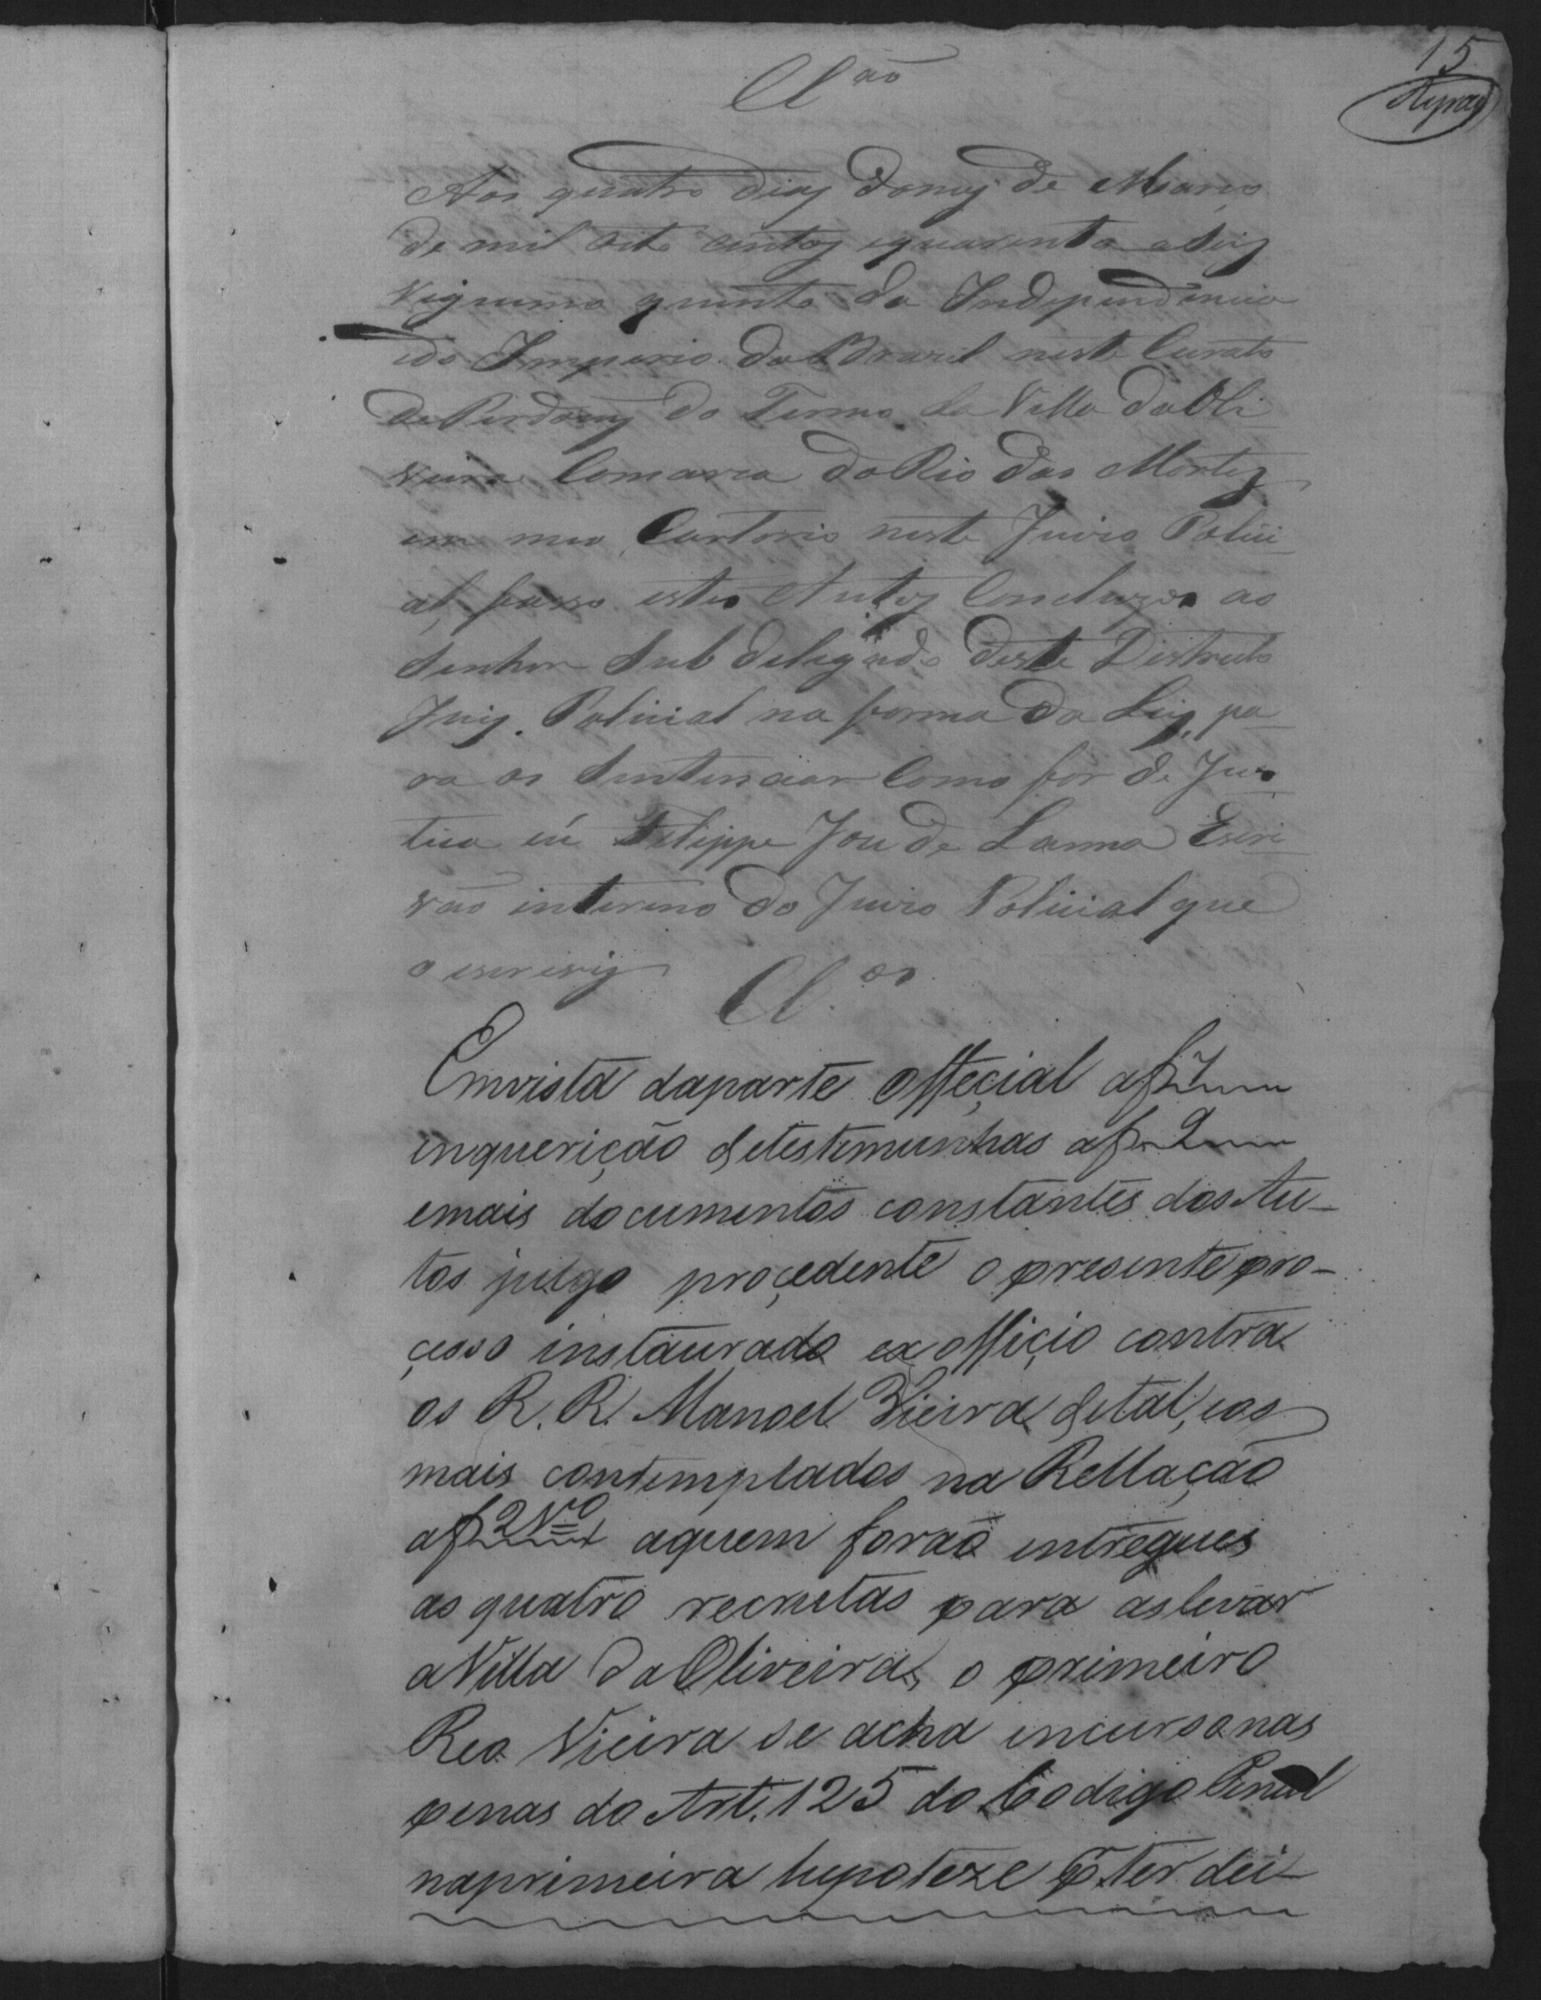 15
Cl.ão
Aos quatro dias do mez de Março
de mil oito centos e quarenta e Seis
Vigecimo quinto da Independencia
e do Imperio do Brazil neste Curato
de Perdoens do Termo da Villa da Oli
veira Comarca do Rio das Mortes
em meu Cartorio neste Juizo Polici
al, fasso estes Autos Concluzos ao
Senhor Sub delegado deste Destricto
Juiz Policial na forma da Lei, pa
ra os Sentenciar Como for de Jus
tica eu Felippe Joze de Lanna Escri
vão interino do Juizo Policial que
o escrevi
Cl.os
Emvista daparte offeçial af 1
inquerição detestemunhas af 2
emais documentos constantes dos Au-
tos julgo proçedente o presente pro-
çesso instaurado ex offiçio contra
os R. R. Manoel Vieira detal, eos
mais contemplados na Rellação
af 2 Vo aquem forão entregues
os quatro recrutas para aslevar
a Villa da Oliveira, o primeiro
Reo Vieira se acha incurso nas
penas do Art. 125 do Codigo Penal
naprimeira hypoteze p. ter dei-